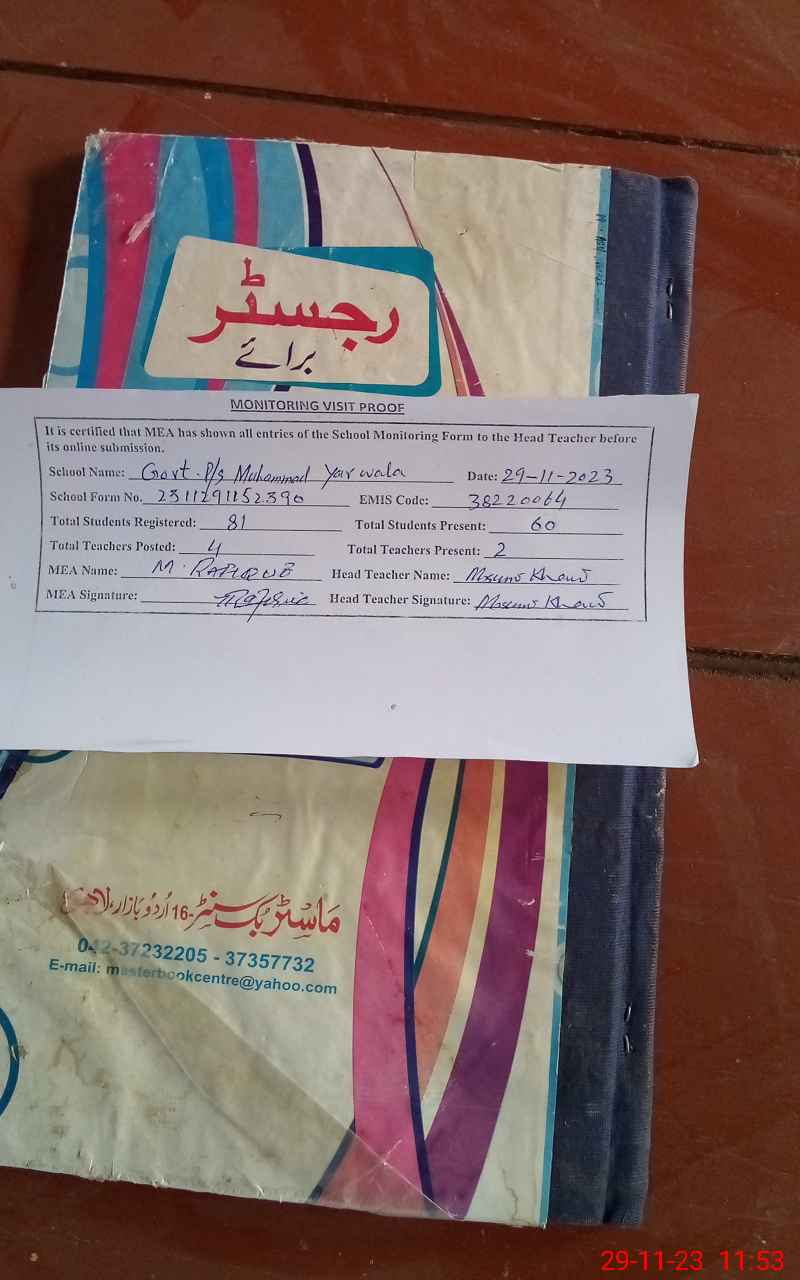 رجسٹر
برائے
MONITORING VISIT PROOF
It is certified that MEA has shown all entries of the School Monitoring Form to the Head Teacher before
its online submission.
School Name: Govt. P/s Muhammad Yar wala Date: 29-11-2023
School Form No. 2311291152390 EMIS Code: 38220064
Total Students Registered: 81 Total Students Present: 60
Total Teachers Posted: 4 Total Teachers Present: 2
MEA Name: Head Teacher Name:
MEA Signature: Head Teacher Signature:
ماسٹر بک سنٹر-16 اُردُو بازار، لاہور
042-37232205 - 37357732
E-mail: masterbookcentre@yahoo.com
29-11-23 11:53